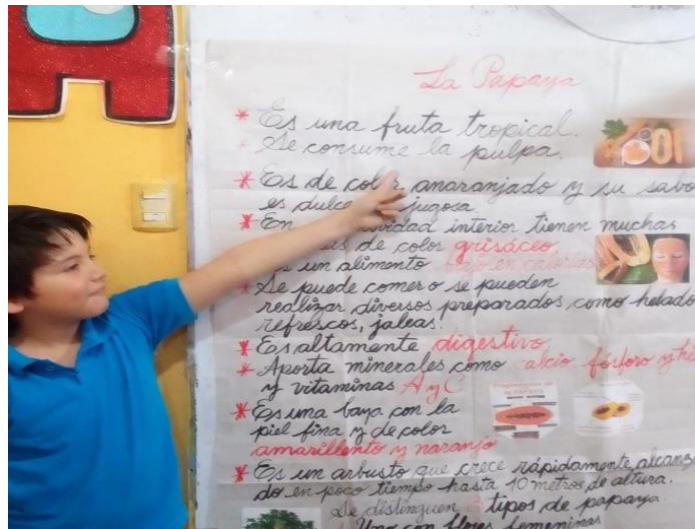 La Papaya
* Es una fruta tropical.
* Se consume la pulpa.
* Es de color anaranjado y su sabo
es dulce jugosa.
* En vidad interior tienen muchas
de color grisáceo.
un alimento bajo en calorías
* Se puede comer o se pueden
realizar diversos preparados como helado
refrescos, jaleas.
* Es altamente digestivo.
* Aporta minerales como calcio fósforo y hi
y vitaminas A y C
* Es una baya con la
piel fina y de color
amarillento y naranjo
* Es un arbusto que crece rápidamente alcanza
do en poco tiempo hasta 10 metros de altura.
Se distinguen 3 tipos de papaya.
Uno con flores femenina